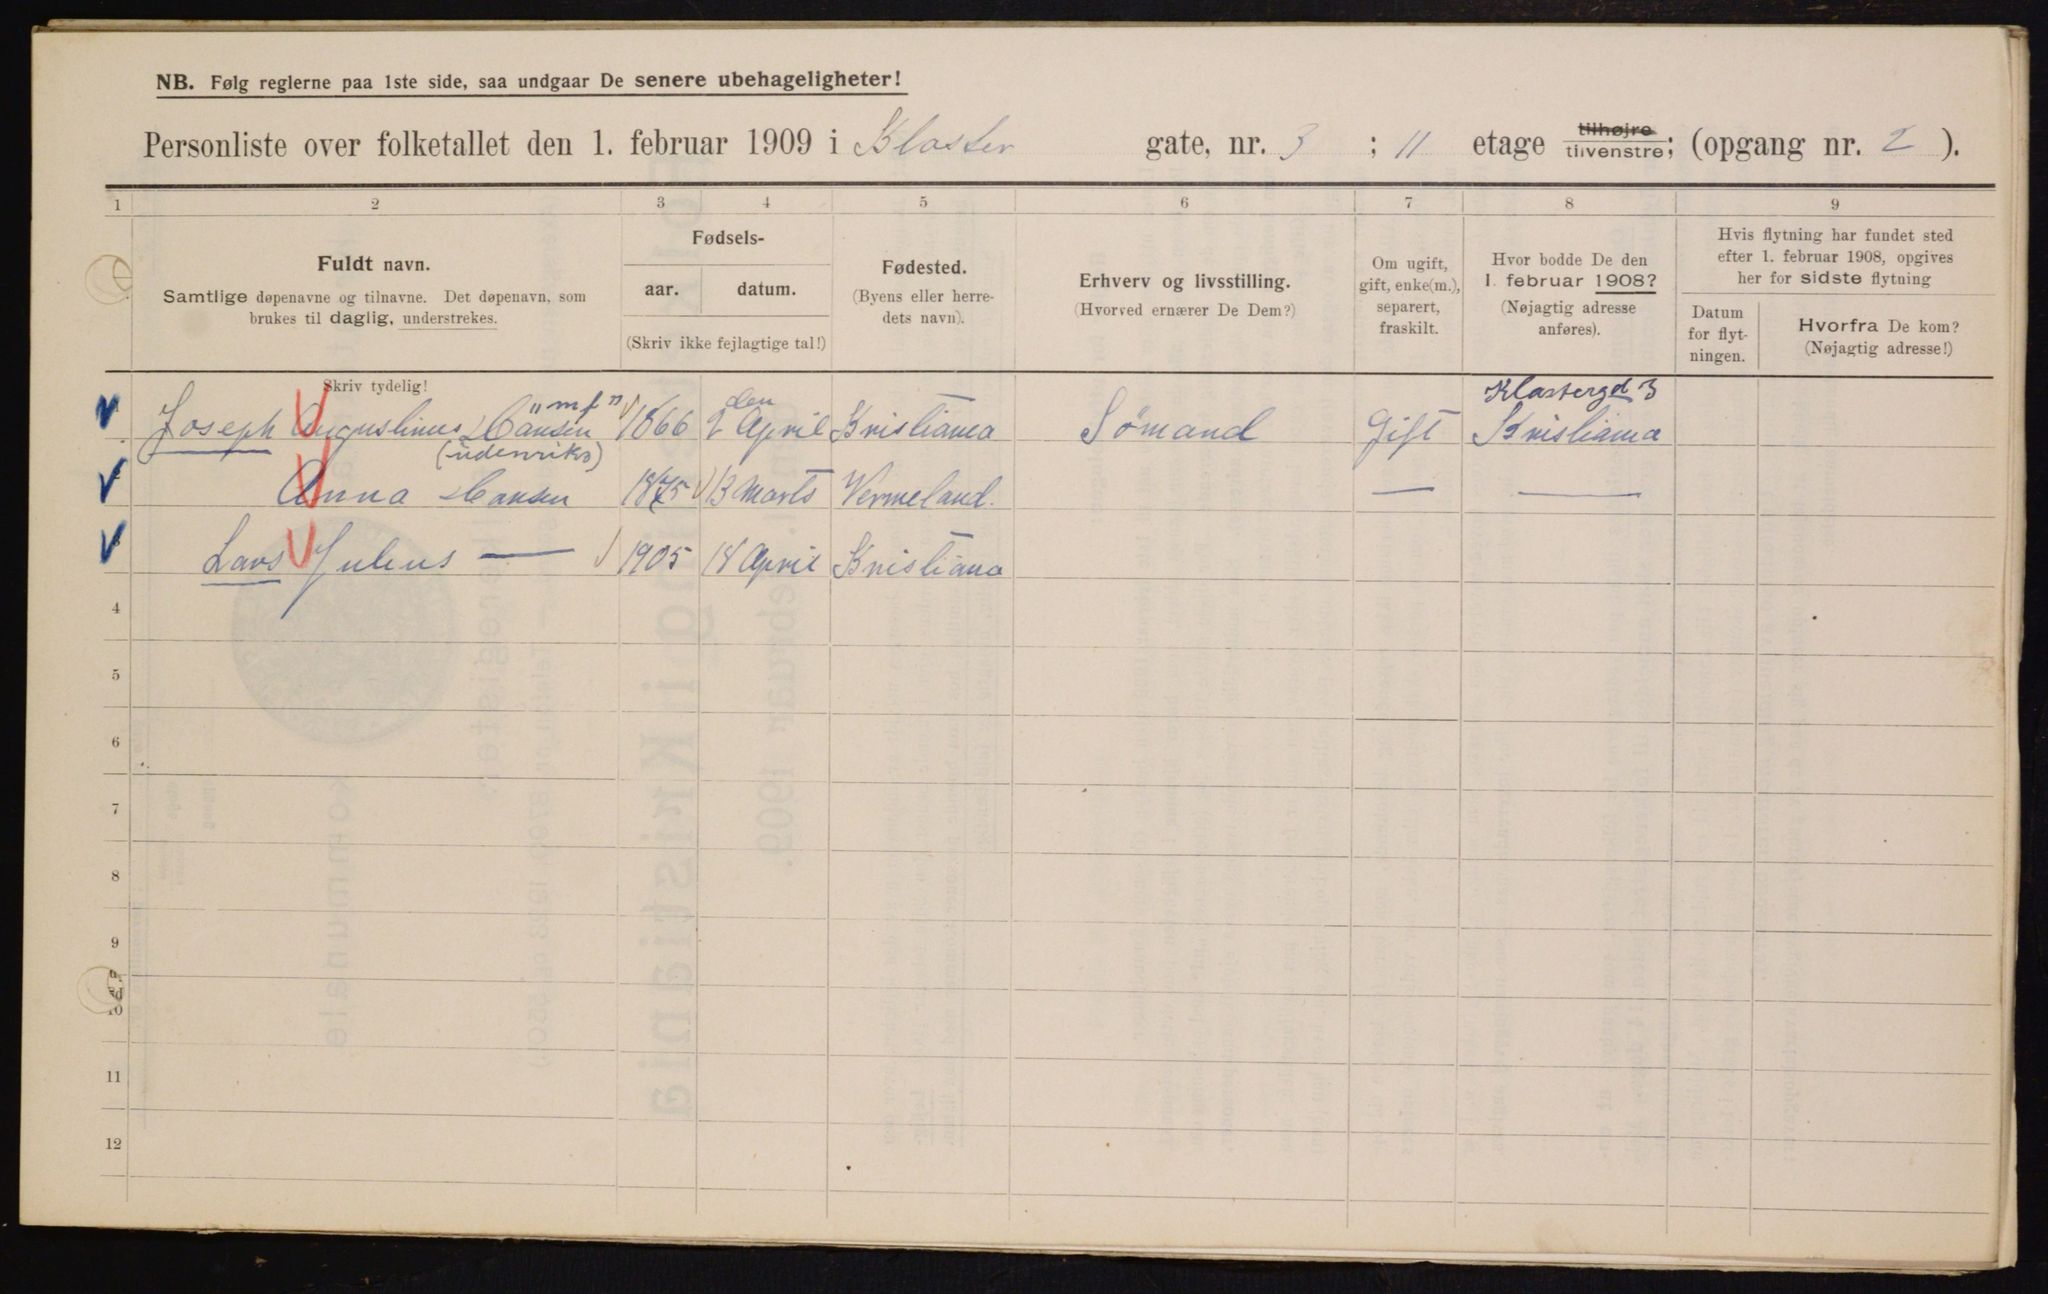 NB. Følg reglerne paa 1ste side, saa undgaar De senere ubehageligheter!
Personliste over folketallet den 1. februar 1909 i Kloster gate, nr. 3 ; 11 etage tilhøjre tilvenstre; (opgang nr. 2 ).
1 2 3 4 5 6 7 8 9
Fuldt navn.
Samtlige døpenavne og tilnavne. Det døpenavn, som
brukes til daglig, understrekes.
Skriv tydelig!
Fødsels-
aar. datum.
(Skriv ikke fejlagtige tal!)
Fødested.
(Byens eller herre-
dets navn).
Erhverv og livsstilling.
(Hvorved ernærer De Dem?)
Om ugift,
gift, enke(m.),
separert,
fraskilt.
Hvor bodde De den
1. februar 1908?
(Nøjagtig adresse
anføres).
Hvis flytning har fundet sted
efter 1. februar 1908, opgives
her for sidste flytning
Datum
for flyt-
ningen.
Hvorfra De kom?
(Nøjagtig adresse!)
"mf" den Klostergd 3
Joseph Augustinus Hansen 1866 2 April Kristiania Sømand Gift Kristiania
(udenriks)
Anna Hansen 1875 13 Marts Vermeland. — —
Lars Julius — 1905 18 April Kristiana
4
5
6
7
8
9
10
11
12